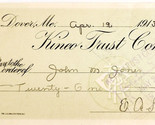 Dover, Me. Apr. 12 1913
Kineo Trust Co
Pay to the order of John M. Jones
Twenty-One